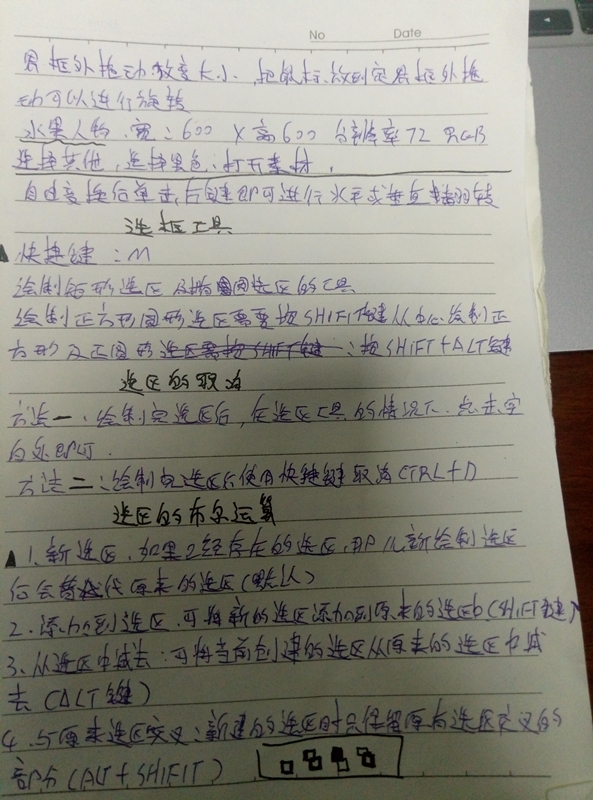 No Date
界框外拖动改变大小. 把鼠标放到定界框外拖
动可以进行旋转
水果人物. 宽:600 X 高600 分辨率72 RGB
选择其他, 选择黑色:打开素材.
自由变换后单击右键即可进行水平或垂直翻转
选框工具
快捷键:M
绘制矩形选区 及椭圆选区的工具
绘制正方形圆形选区需要按SHIFT键从中心绘制正
方形及正圆形选区需按SHIFT键:按SHIFT+ALT键
选区的取消
方法一、绘制完选区后,在选区工具的情况下.点击空
白处即可.
方法二:绘制完选区后使用快捷键取消CTRL+D
选区的布尔运算
1.新选区.如果已经存在的选区,那么新绘制选区
后会替代原来的选区(默认)
2.添加到选区.可将新的选区添加到原来的选区中(SHIFT键)
3.从选区中减去:可将当前创建的选区从原来的选区中减
去(ALT键)
4.与原来选区交叉:新建的选区时只保留原有选区交叉的
部分(ALT+SHIFIT)